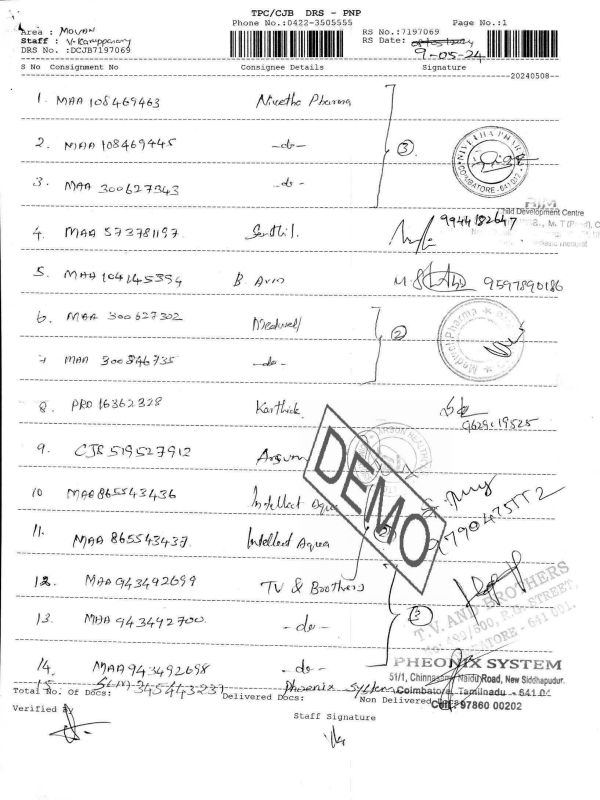 TPC/CJB DRS - PNP
Phone No.:0422-3505555
Page No.:1
Area : MOVAN
Staff : V. Karuppasamy
RS No.:7197069
RS Date:
9-05-24
DRS No. :DCJB7197069
S No Consignment No Consignee Details Signature
20240508
1. MAA 108469463 Nivetha Pharma
2. MAA 108469445 -do- ③
NIVETHA PHARMA
COIMBATORE - 641 012
3. MAA 300627343 -do-
Child Development Centre
4. MAA 573781197 Senthil. 9944182647
5. MAA 104145394 B Avin 9597890186
6. MAA 300627302 Medwell ②
7 MAA 300846735 -do-
8. PRO 16362328 Karthick 9629119525
9. CJB 519527912
10 MAA 865543436 Intellect Aqua
DEMO
11. MAA 865543437 Intellect Aqua
12. MAA 943492699 TV & Brothers
13. MAA 943492700 -do- ③
T.V. AND BROTHERS
14. MAA 943492698 -do-
PHEONIX SYSTEM
51/1, Chinnasamy Naidu Road, New Siddhapudur.
15. SLM 345443237 Phoenix System
Coimbatore, Tamilnadu - 641 04
Cell: 97860 00202
Total No. Of Docs: Delivered Docs: Non Delivered Docs:
Verified By
Staff Signature